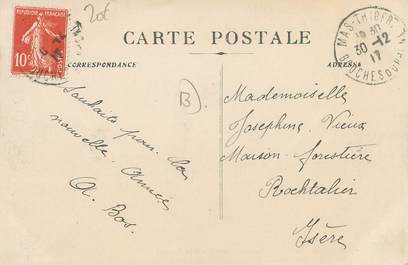 20f
10c
CARTE POSTALE
CORRESPONDANCE
ADRESSE
MAS-THIBERT
30
30-12
17
BOUCHES DU RHONE
B
Souhaits pour la
nouvelle Année
A. Bos.
Mademoiselle
Josephine Vieux
Maison forestière
Rochtalier
Isère